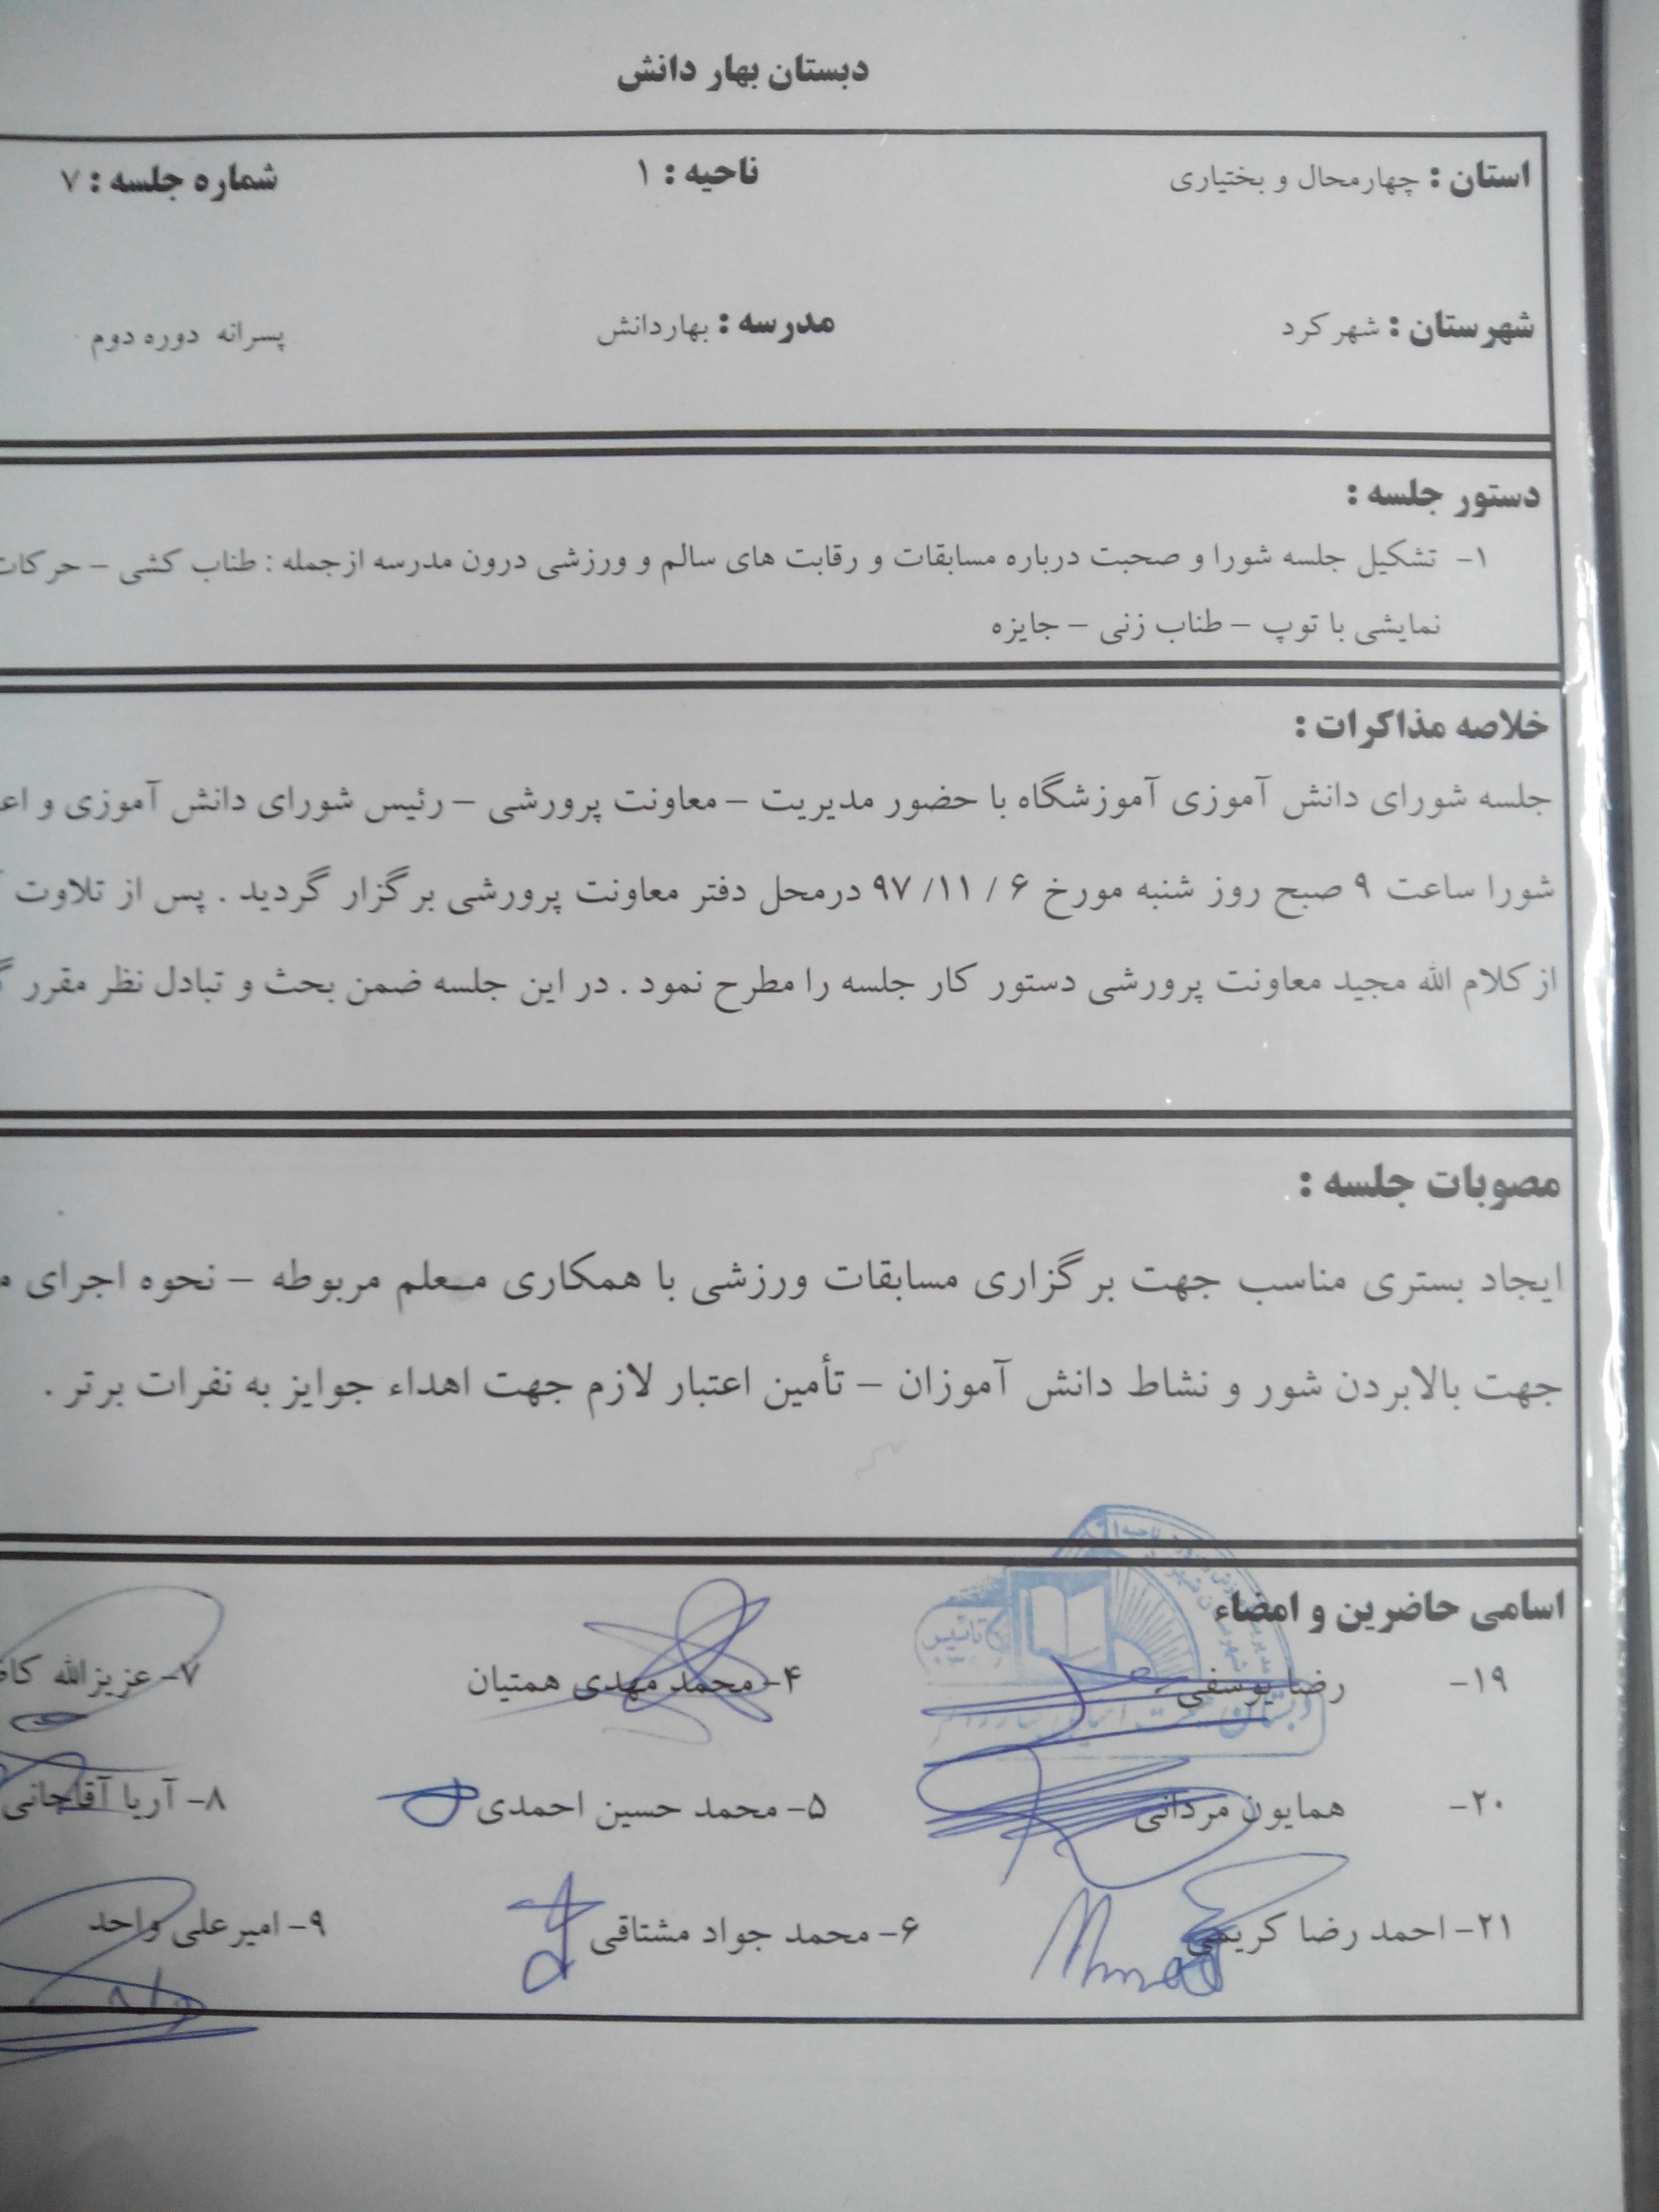 دبستان بهار دانش
استان : چهارمحال و بختیاری ناحیه : ۱ شماره جلسه : ۷
شهرستان : شهرکرد مدرسه : بهاردانش پسرانه دوره دوم
دستور جلسه :
۱- تشکیل جلسه شورا و صحبت درباره مسابقات و رقابت های سالم و ورزشی درون مدرسه ازجمله : طناب کشی – حرکات
نمایشی با توپ – طناب زنی – جایزه
خلاصه مذاکرات :
جلسه شورای دانش آموزی آموزشگاه با حضور مدیریت – معاونت پرورشی – رئیس شورای دانش آموزی و
شورا ساعت ۹ صبح روز شنبه مورخ ۶ / ۱۱/ ۹۷ درمحل دفتر معاونت پرورشی برگزار گردید . پس از تلاوت
از کلام الله مجید معاونت پرورشی دستور کار جلسه را مطرح نمود . در این جلسه ضمن بحث و تبادل نظر مقرر
مصوبات جلسه :
ایجاد بستری مناسب جهت برگزاری مسابقات ورزشی با همکاری مـعلم مربوطه – نحوه اجرای
جهت بالابردن شور و نشاط دانش آموزان – تأمین اعتبار لازم جهت اهداء جوایز به نفرات برتر .
اسامی حاضرین و امضاء
۱۹- رضا یوسفی ۴- محمد مهدی همتیان ۷- عزیزالله
۲۰- همایون مردانی ۵- محمد حسین احمدی ۸- آریا آقاجانی
۲۱- احمد رضا کریمی ۶- محمد جواد مشتاقی ۹- امیرعلی واحد